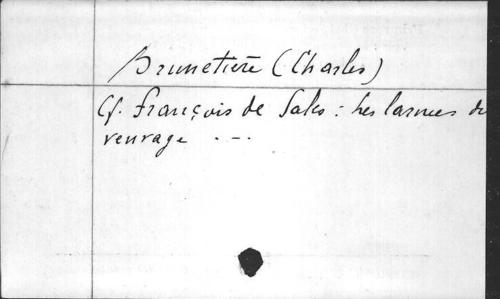 Brunetière (Charles)
Cf. François de Sales : Les larmes du
veuvage . - -